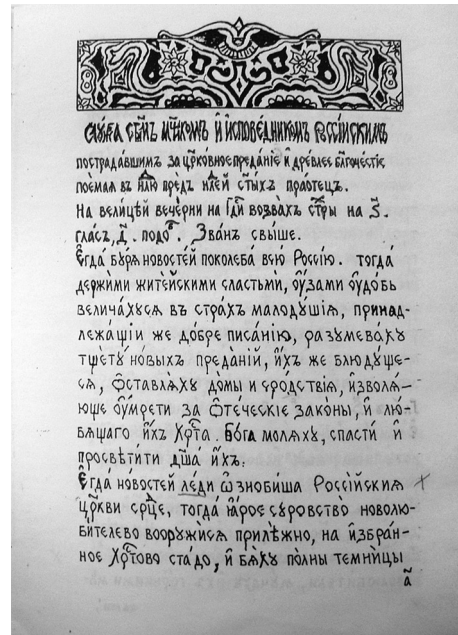 слꙋ́жба ст҃ы̑мъ мч҃нкомъ и҆ и҆сповѣ́дникомъ рѡссі́йскимъ
пострада́вшимъ за цр҃ко́вное преда́нїе и҆ дре́влее бл҃гоче́стїе
пое́маѧ въ нлю пре́дъ нл҃ей ст҃ы́хъ праоте́цъ.
На вели́цѣй вече́рни на Гд҇и возва́хъ ст҇ры на ѕ҃.
гла́съ, д҃. подо́б. Зва́нъ свы́ше.
Є҆гда̀ бꙋ́рѧ новостей поколеба̀ всю̀ Россі́ю. тогда̀
держи́ми жите́йскими сластьмѝ, оу҆́зами оу҆до́бь
велича́хусѧ въ стра́хъ малодꙋ́шїѧ, прина́д-
лежа́щїи же до́бре писа́нїю, разумева́хꙋ
тщетꙋ̀ но́выхъ преда́нїй, и҆́хъ же блюдꙋ́ще-
сѧ, ѡ҆ставлѧ́хꙋ до́мы и҆ сро́дствїѧ, и҆зволѧ́-
юще оу҆мре́ти за ѻ҆те́ческїе зако́ны, и҆ лю́-
бѧщаго и҆́хъ Хрⷭ҇та̀. Бо́га молѧ́хꙋ, спастѝ и҆
просвѣти́ти дш҃а и҆́хъ.
Є҆гда̀ новостей ле́ди ѡ҆знобиша Россі́йскиѧ
цр҃кви ср҃це, тогда̀ ꙗ҆́рое суро́вство новолю-
би́телево воорꙋжи́сѧ прилѣ́жно, на и҆збра́н-
ное Хрⷭ҇то́во ста́до, и҆ бѧ́хꙋ по́лны темни́цы
а҃